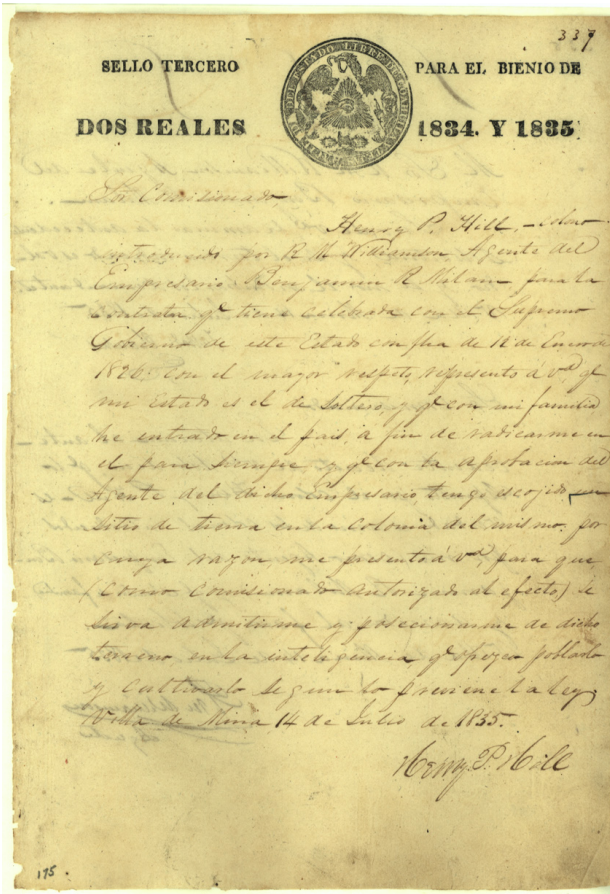 337
SELLO TERCERO
PARA EL BIENIO DE
DOS REALES
1834. Y 1835
Sor. Comisionado,
Henry P. Hill, colono
introducido por R M Williamson Agente del
Empresario Benjamin R Milam para la
contrata qe tiene celebrada con el Supremo
Gobierno de este Estado con fha de 12 de Enero de
1826. Con el mayor respeto, represento á Vd. qe
mi Estado es el de Soltero, y qe con mi familia
he entrado en el pais, a fin de radicarme en
el para siempre, y qe con la aprobacion del
Agente del dicho Empresario tengo escojido un
sitio de tierra en la colonia del mismo. por
cuya razon me presento á Vd, para que
(como comisionado autorizado al efecto) se
sirva admitirme y posecionarme de dicho
terreno en la inteligencia qe ofrezco poblarlo
y cultivarlo segun lo previene la ley.
Villa de Mina 14 de Julio de 1835.
Henry P. Hill
175